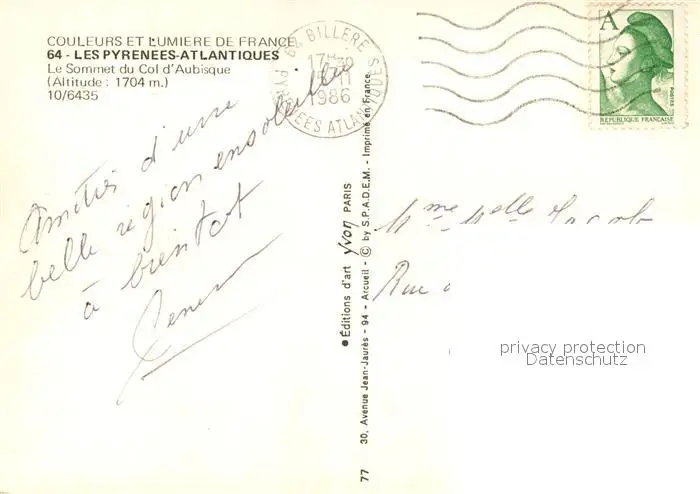 COULEURS ET LUMIERE DE FRANCE
64 - LES PYRENEES-ATLANTIQUES
Le Sommet du Col d'Aubisque
(Altitude : 1704 m.)
10/6435
64 BILLERE
17H30
1986
PYRENEES ATLANTIQUES
A
POSTES
REPUBLIQUE FRANÇAISE
Amitiés d'une
belle région ensoleillée
à bientôt
●Editions d'art yvon PARIS
30, Avenue Jean-Jaurès - 94 - Arcueil - © by S.P.A.D.E.M. - Imprimé en France.
77
Mme Melle
Rue
privacy protection
Datenschutz